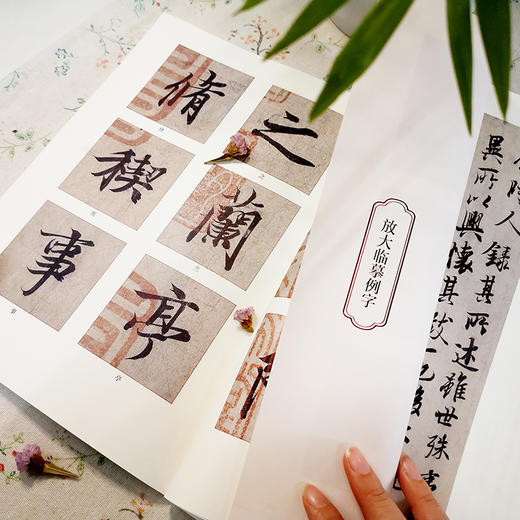 之蘭亭
脩禊事
放大临摹例字
人錄其所述雖世殊事
異所以興懷其致一也後